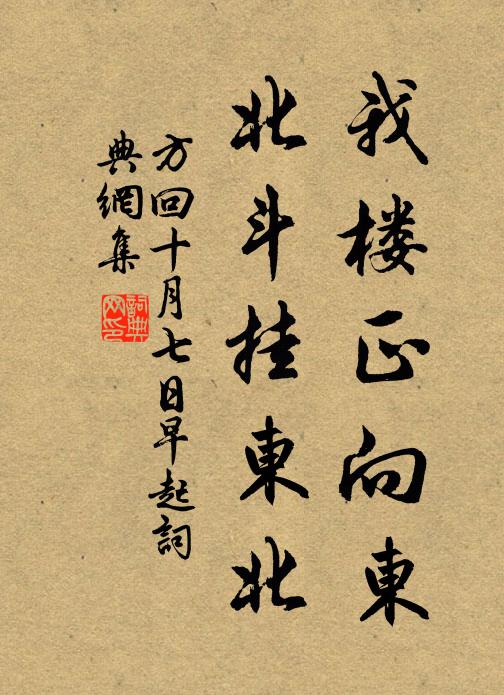 我楼正向東
北斗挂東北
方回十月七日早起詞
典網集
詞典
网印